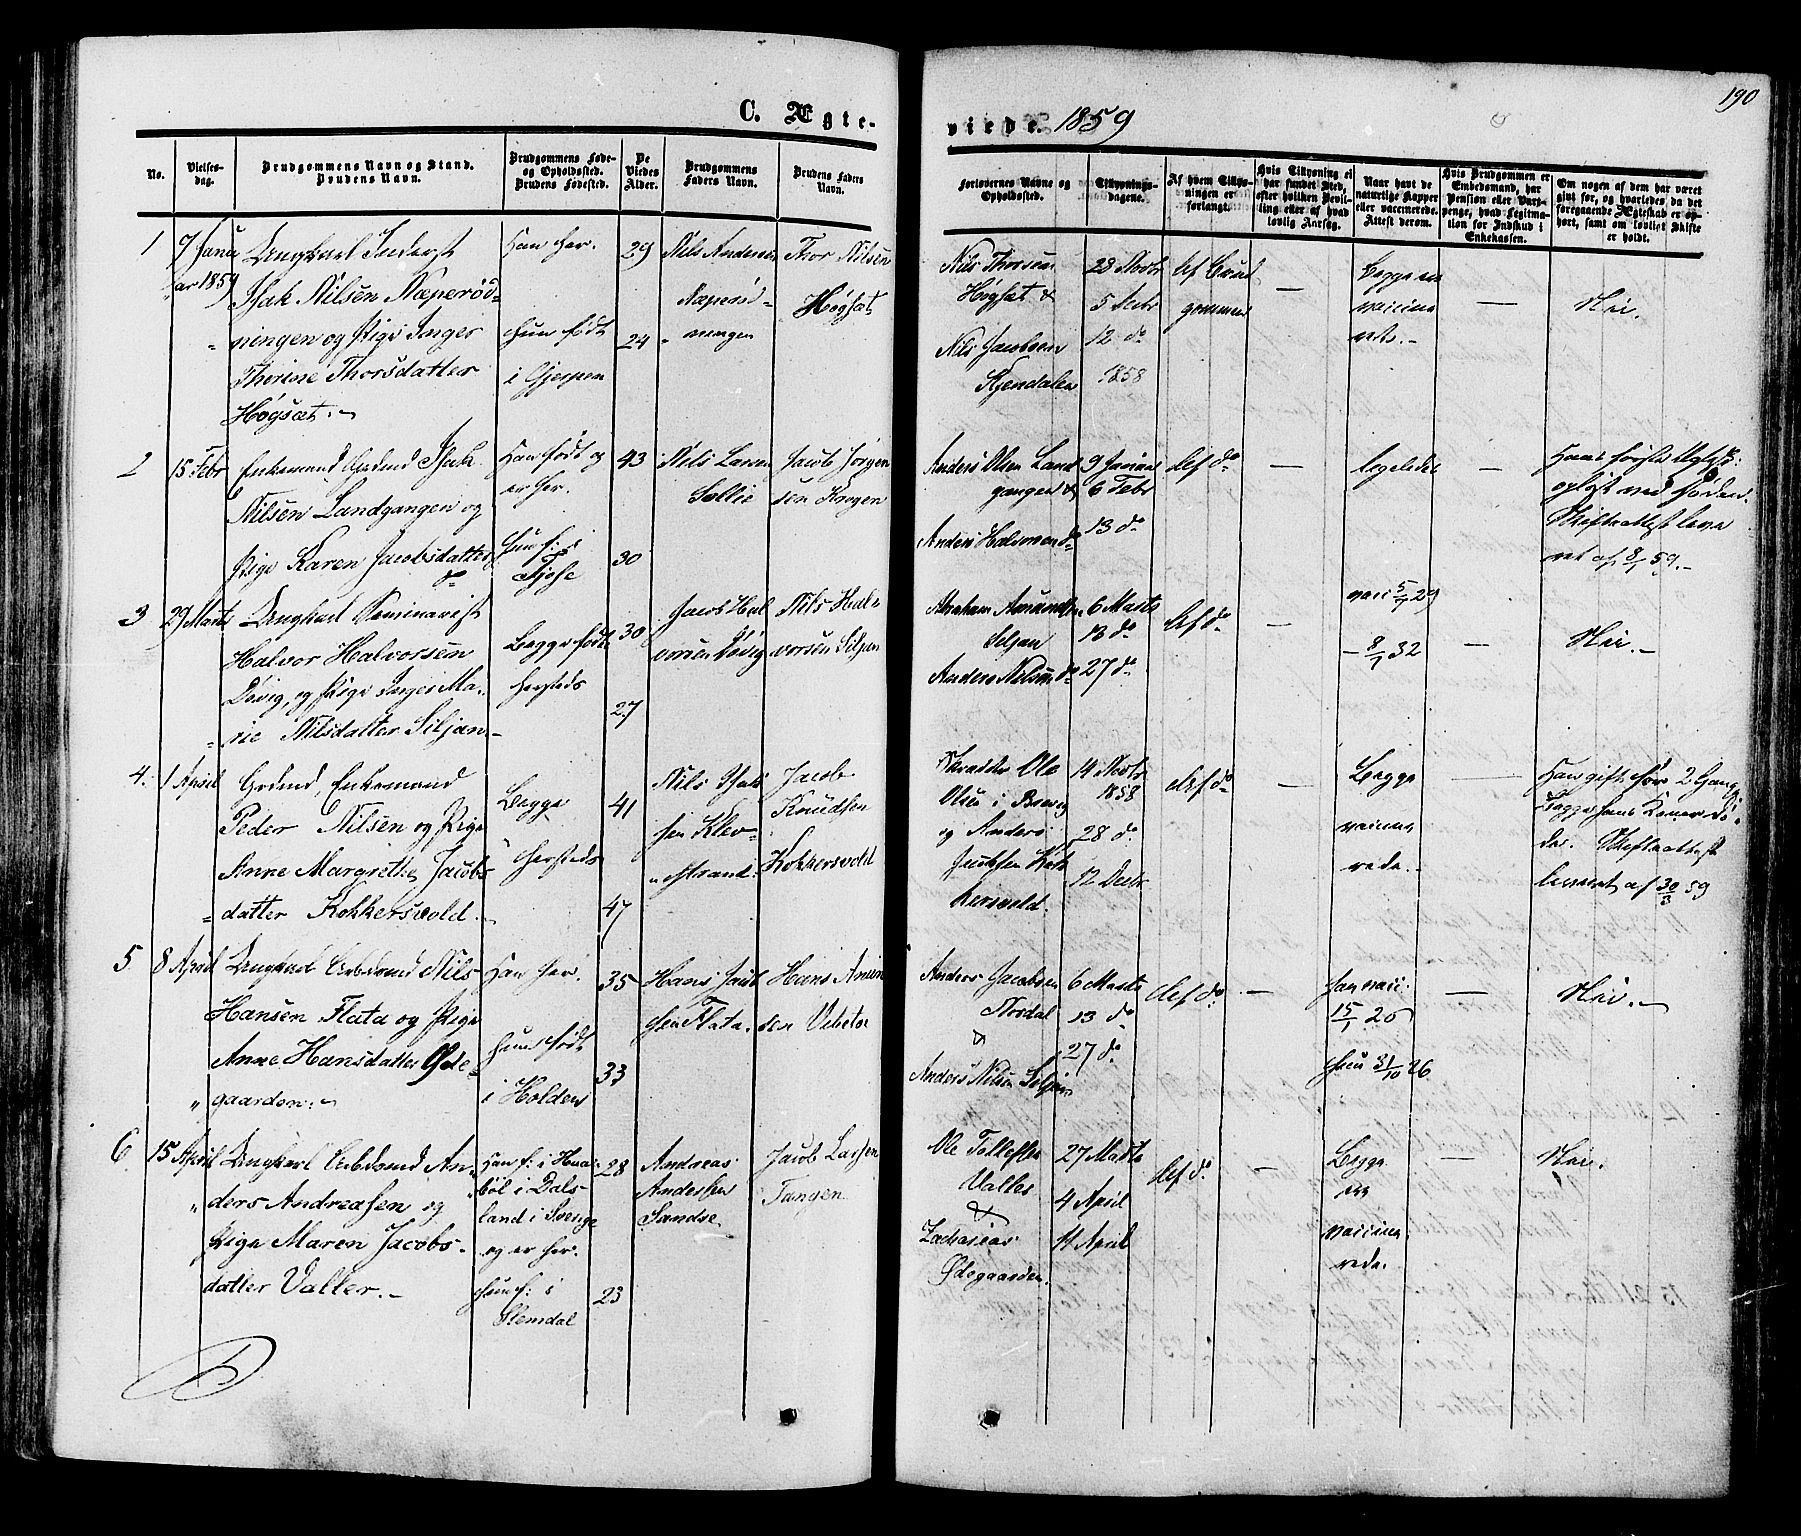 C. Ægte-
viede. 1859
190
No.
Vielses-
dag.
Brudgommens Navn og Stand.
Brudens Navn.
Brudgommens Føde-
og Opholdssted.
Brudens Fødested.
De
Viedes
Alder.
Brudgommens
Faders Navn.
Brudens Faders
Navn.
Forlovernes Navne og
Opholdssted.
Tillysnings-
dagene.
Af hvem Tillys-
ningen er
forlangt.
Hvis Tillysning ei
har fundet Sted,
efter hvilken Bevil-
ling eller af hvad
lovlig Aarsag.
Naar havt de
naturlige Kopper
eller vaccinerede.
Attest derom.
Hvis Brudgommen er
Embedsmand, har
Pension eller Vart-
penge, hvad Legitima-
tion for Indskud i
Enkekassen.
Om nogen af dem har været
givt før, og hvorledes da det
foregaaende Ægteskab er op-
hørt, samt om lovligt Skifte
er holdt.
1
7 Janu
ar 1859
Ungkarl Inderst
Isak Nilsen Næperød-
ningen og Pige Inger
Therine Thorsdatter
Høgsæt.
Han her.
Hun født
i Gjerpen
29
24
Nils Andersen
Næperød-
ningen
Thor Nilsen
Høgsæt
Nils Thorsen
Høgsæt &
Nils Jacobsen
28 Novbr
5 Decbr
12 do
1858
Af Brud
gommen
—
Begge ere
vaccine
rede.
—
Nei.
2
15 Febr
Enkemand Grdmd Isak
Nilsen Landgangen og
Pige Karen Jacobsdatter
do
Han født og
er her.
Hun f: i
Tjose
43
30
Nils Larsen
Sællie
Jacob Jørgen
sen Krogen
Anders Olsen Land
gangen &
Anders Halvorsen do
9 Januar
6 Febr
13 do
Af do
—
ligeledes
—
Hans første Ægtsk:
opløst ved Døden.
Skifteattest leve
ret af 8/1 59.
3
29 Marts
Ungkarl Seminarist
Halvor Halvorsen
Døvig, og Pige Inger Ma-
rie Nilsdatter Siljan
Begge født
hersteds
30
27
Jacob Hal
vorsen Døvig
Nils Hal-
vorsen Siljan
Abraham Amundsen
Siljan
Anders Nilsen do
6 Marts
13 do
27 do
Af do
—
vacc 5/7 29
- 8/7 32
—
Nei.
4.
1 April
Grdmd, Enkemand
Peder Nilsen og Pige
Anne Margrethe Jacobs-
datter Kokkersvold
Begge
hersteds
41
47
Nils Isak
sen Klev-
strand
Jacob
Knudsen
Kokkersvold
Ole
Olsen i Brevig
og Anders
Justsen Kok
kersvold.
14 Novbr
1858
28 do
12 Decbr
Af do
Begge
vaccine
rede.
Han gift før 2 Gange
Begge hans Koner dø-
de. Skifteattest
leveret af 30/3 59
5
8 April
Ungkarl Arbdsmd Nils
Hansen Flata og Pige
Anne Hansdatter Øde-
gaarden.
Han her.
Hun født
i Holden
35
33
Hans Jacob
sen Flata
Hans Anun
sen Vibeto
Anders Jacobsen
Nordal
&
Anders Nilsen Siljan
6 Marts
13 do
27 do
Af do
—
Han vacc.
15/1 26
Hun 31/10 26
—
Nei.
6
15 April
Ungkarl Arbdsmd An-
ders Andreasen og
Pige Maren Jacobs-
datter Valler.
Han f: i
bøl i Dals-
land i Sverige
og er her.
Hun f: i
Slemdal
28
23
Andreas
Anderssen
Sandse
Jacob Larsen
Tangen
Ole Tollefsen
Valler
&
Zacharias
Ødegaarden.
27 Marts
4 April
11 April
Af do
—
Begge
ere
vaccine
rede.
—
Nei.